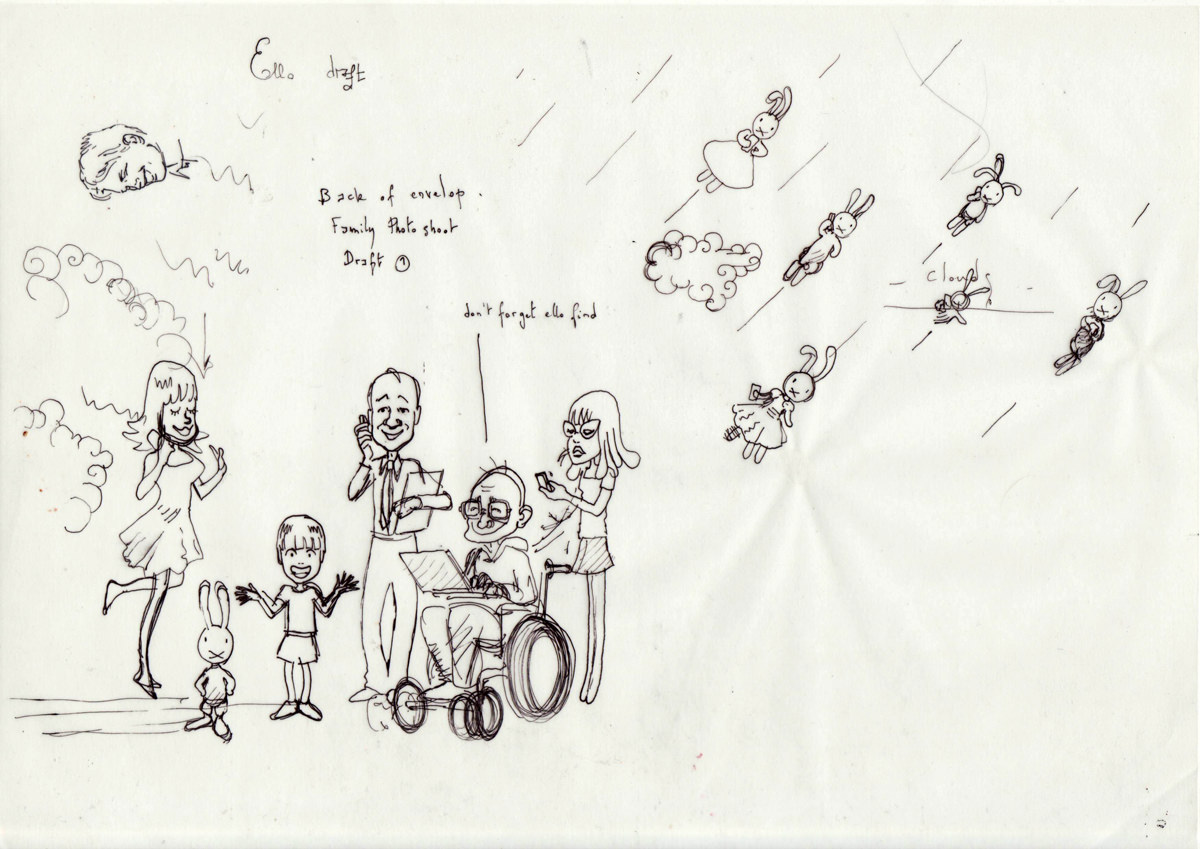 Ello draft
Back of envelop.
Family Photo shoot
Draft 1
don't forget ello find
clouds